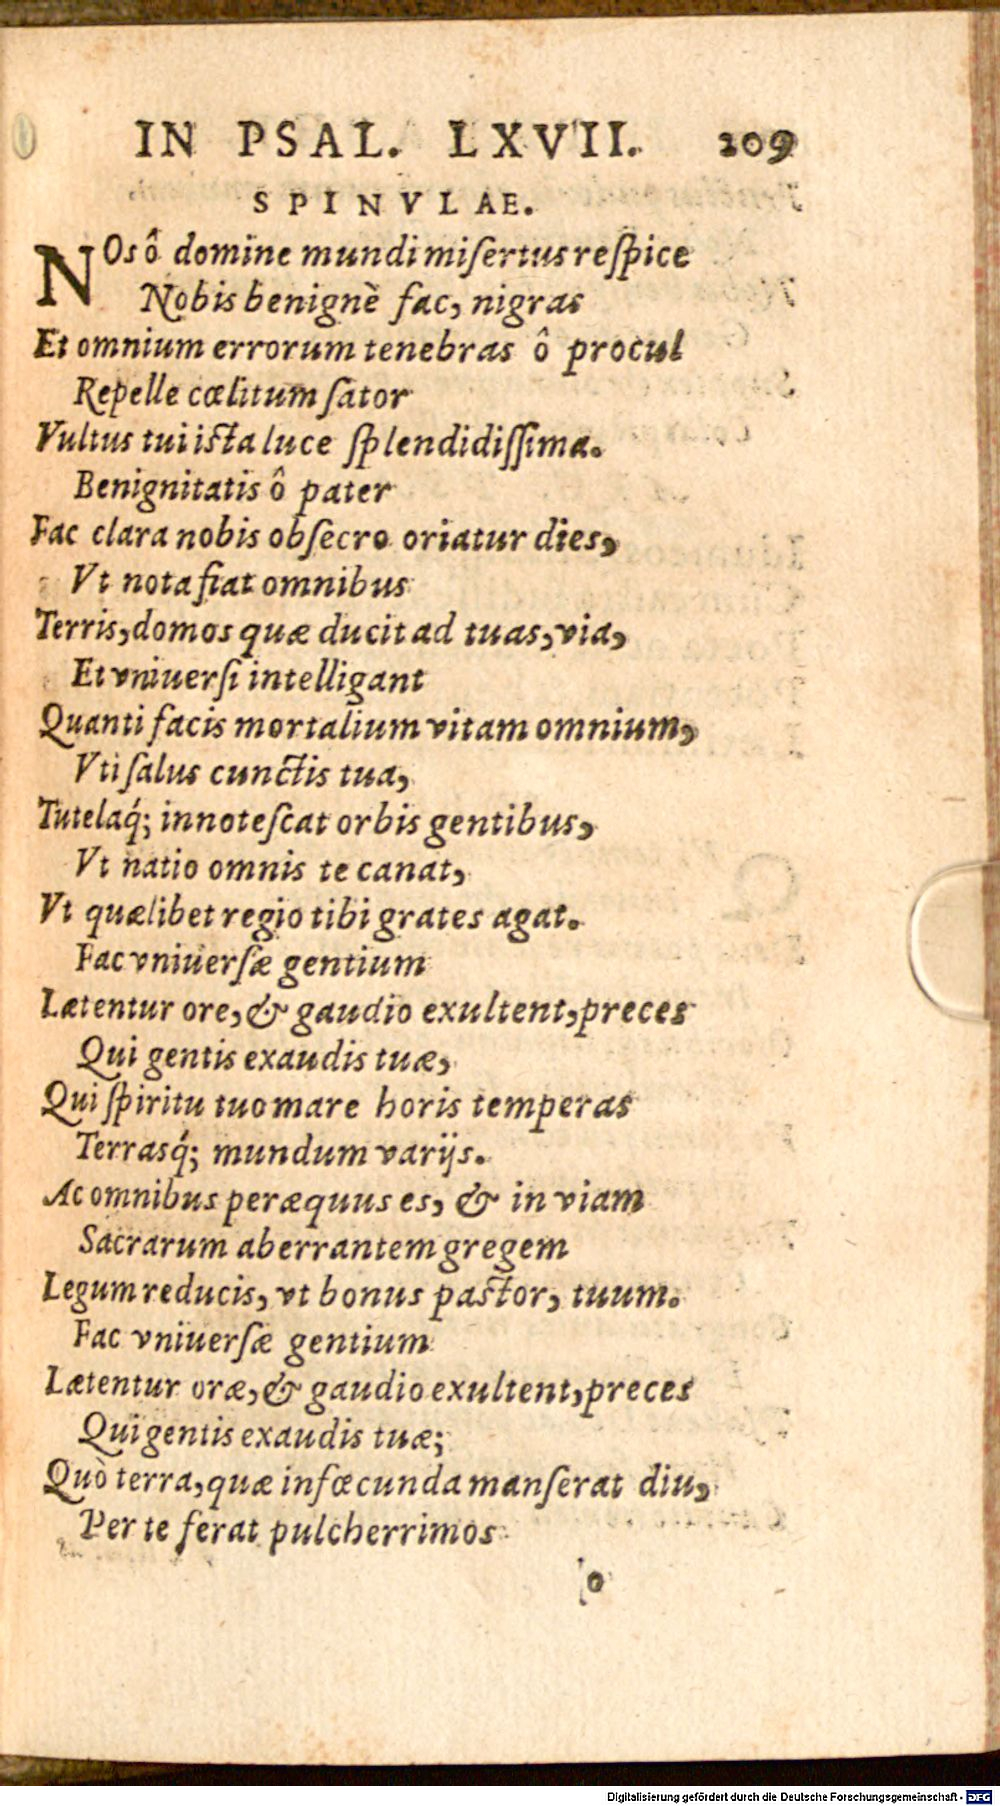 IN PSAL. LXVII. 209
SPINVLAE.
NOs ô domine mundi miſertus reſpice
Nobis benignè fac, nigras
Et omnium errorum tenebras ô procul
Repelle cœlitum ſator
Vultus tui iſta luce ſplendidiſſima.
Benignitatis ô pater
Fac clara nobis obſecro oriatur dies,
Vt nota fiat omnibus
Terris, domos quæ ducit ad tuas, via,
Et vniuerſi intelligant
Quanti facis mortalium vitam omnium,
Vti ſalus cunctis tua,
Tutelaq́; innoteſcat orbis gentibus,
Vt natio omnis te canat,
Vt quælibet regio tibi grates agat.
Fac vniuerſæ gentium
Lætentur ore, & gaudio exultent, preces
Qui gentis exaudis tuæ,
Qui ſpiritu tuo mare horis temperas
Terrasq́; mundum varijs.
Ac omnibus peræquus es, & in viam
Sacrarum aberrantem gregem
Legum reducis, vt bonus paſtor, tuum.
Fac vniuerſæ gentium
Lætentur oræ, & gaudio exultent, preces
Qui gentis exaudis tuæ;
Quò terra, quæ infœcunda manſerat diu,
Per te ferat pulcherrimos
o
Digitalisierung gefördert durch die Deutsche Forschungsgemeinschaft - DFG